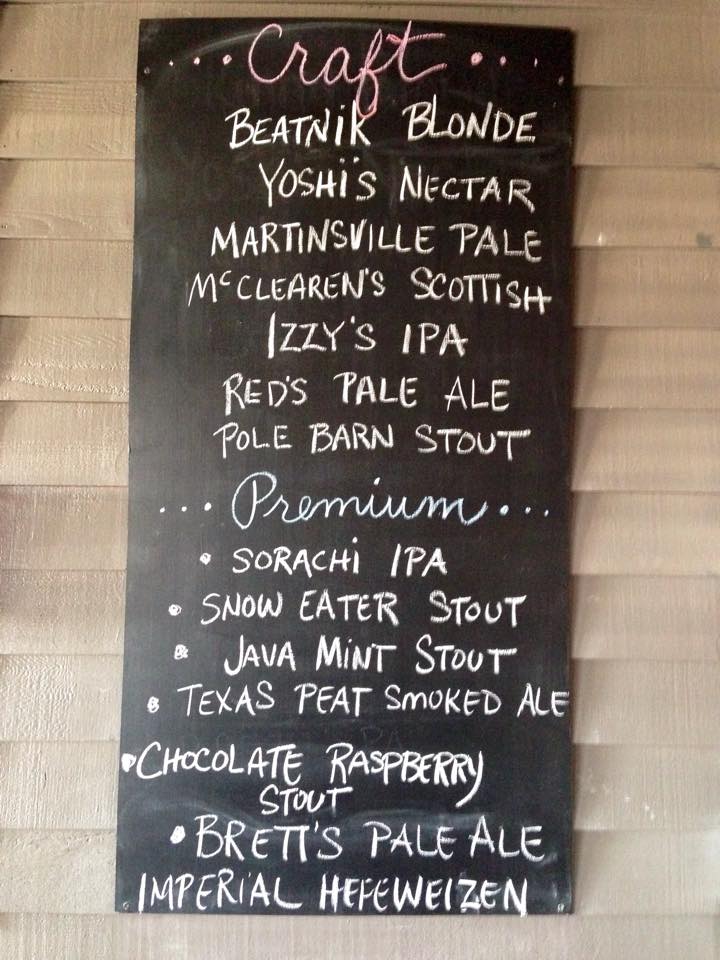 ....Craft....
BEATNIK BLONDE
YOSHI'S NECTAR
MARTINSVILLE PALE
McCLEAREN'S SCOTTISH
IZZY'S IPA
RED'S PALE ALE
POLE BARN STOUT
...Premium...
• SORACHI IPA
• SNOW EATER STOUT
• JAVA MINT STOUT
• TEXAS PEAT SMOKED ALE
• CHOCOLATE RASPBERRY
STOUT
• BRETT'S PALE ALE
IMPERIAL HEFEWEIZEN